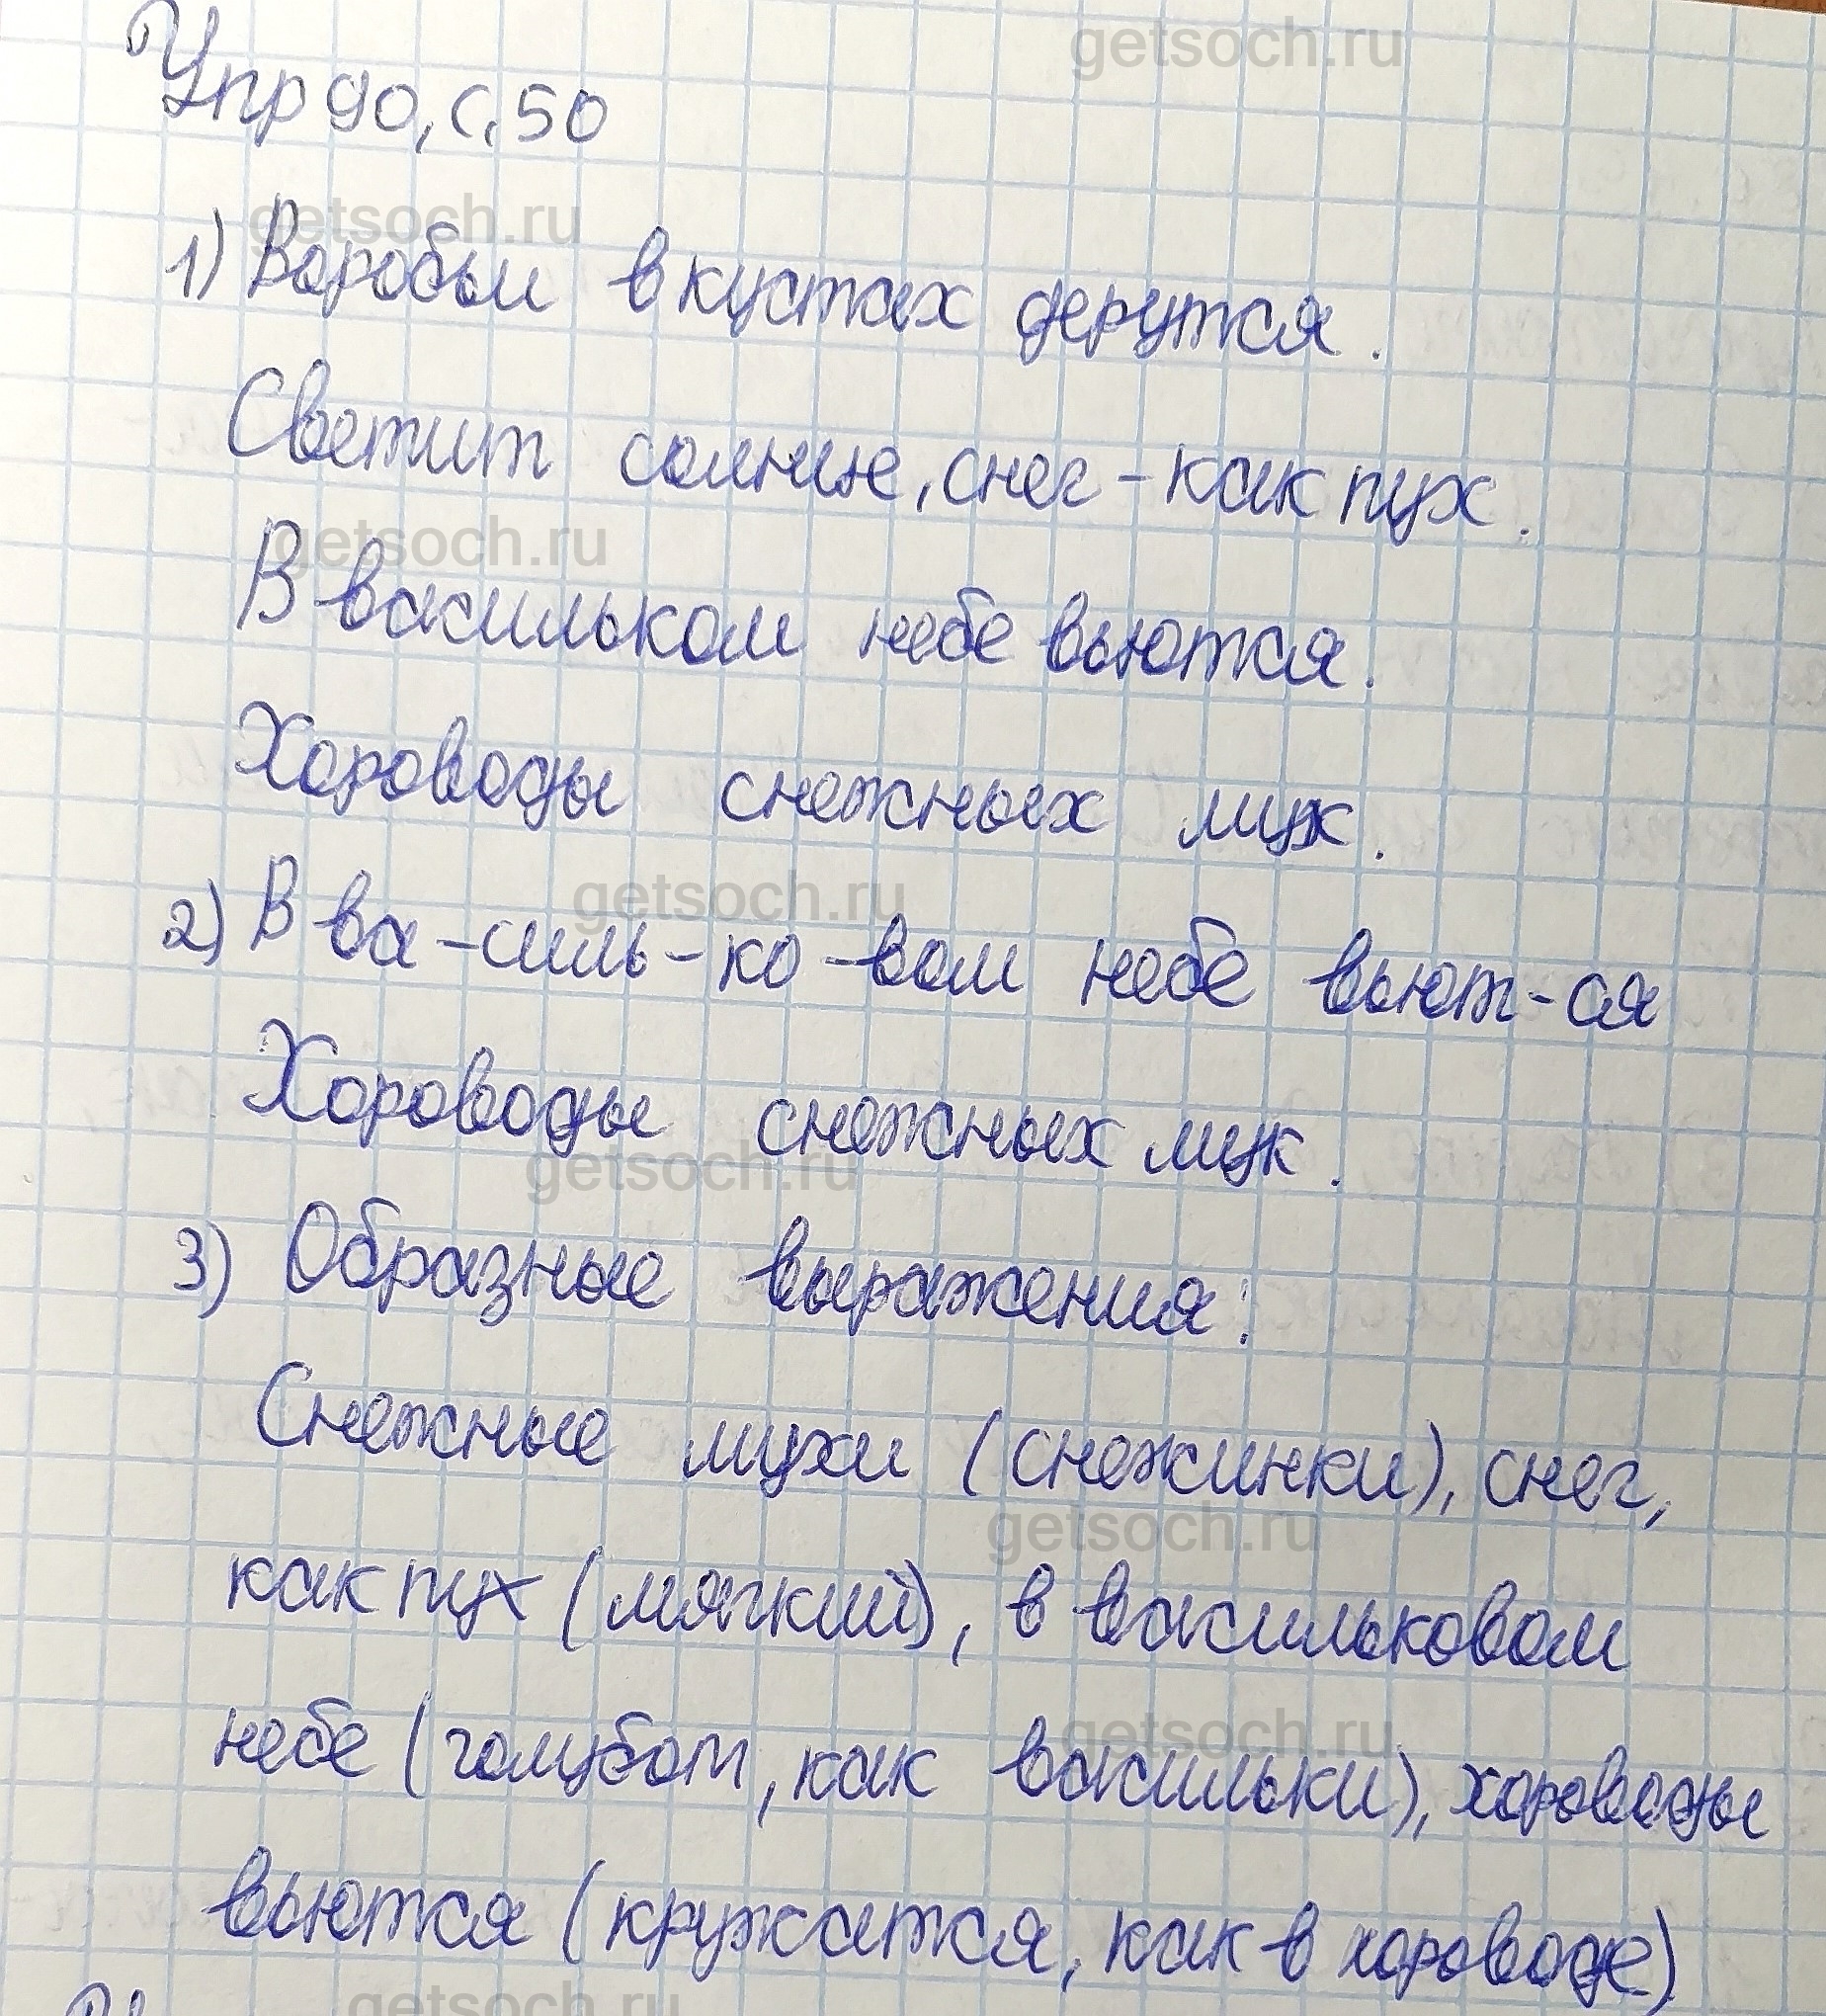 getsoch.ru
Упр 90, с. 50
getsoch.ru
1) Воробьи в кустах дерутся.
Светит солнце, снег - как пух.
getsoch.ru
В васильком небе вьются.
Хороводы снежных мух.
getsoch.ru
2) В ва-силь-ко-вом небе вьют-ся
Хороводы снежных мух.
getsoch.ru
3) Образные выражения:
Снежные мухи (снежинки), снег,
getsoch.ru
как пух (мягкий), в васильковом
getsoch.ru
небе (голубом, как васильки), хороводы
вьются (кружатся, как в хороводе)
getsoch.ru